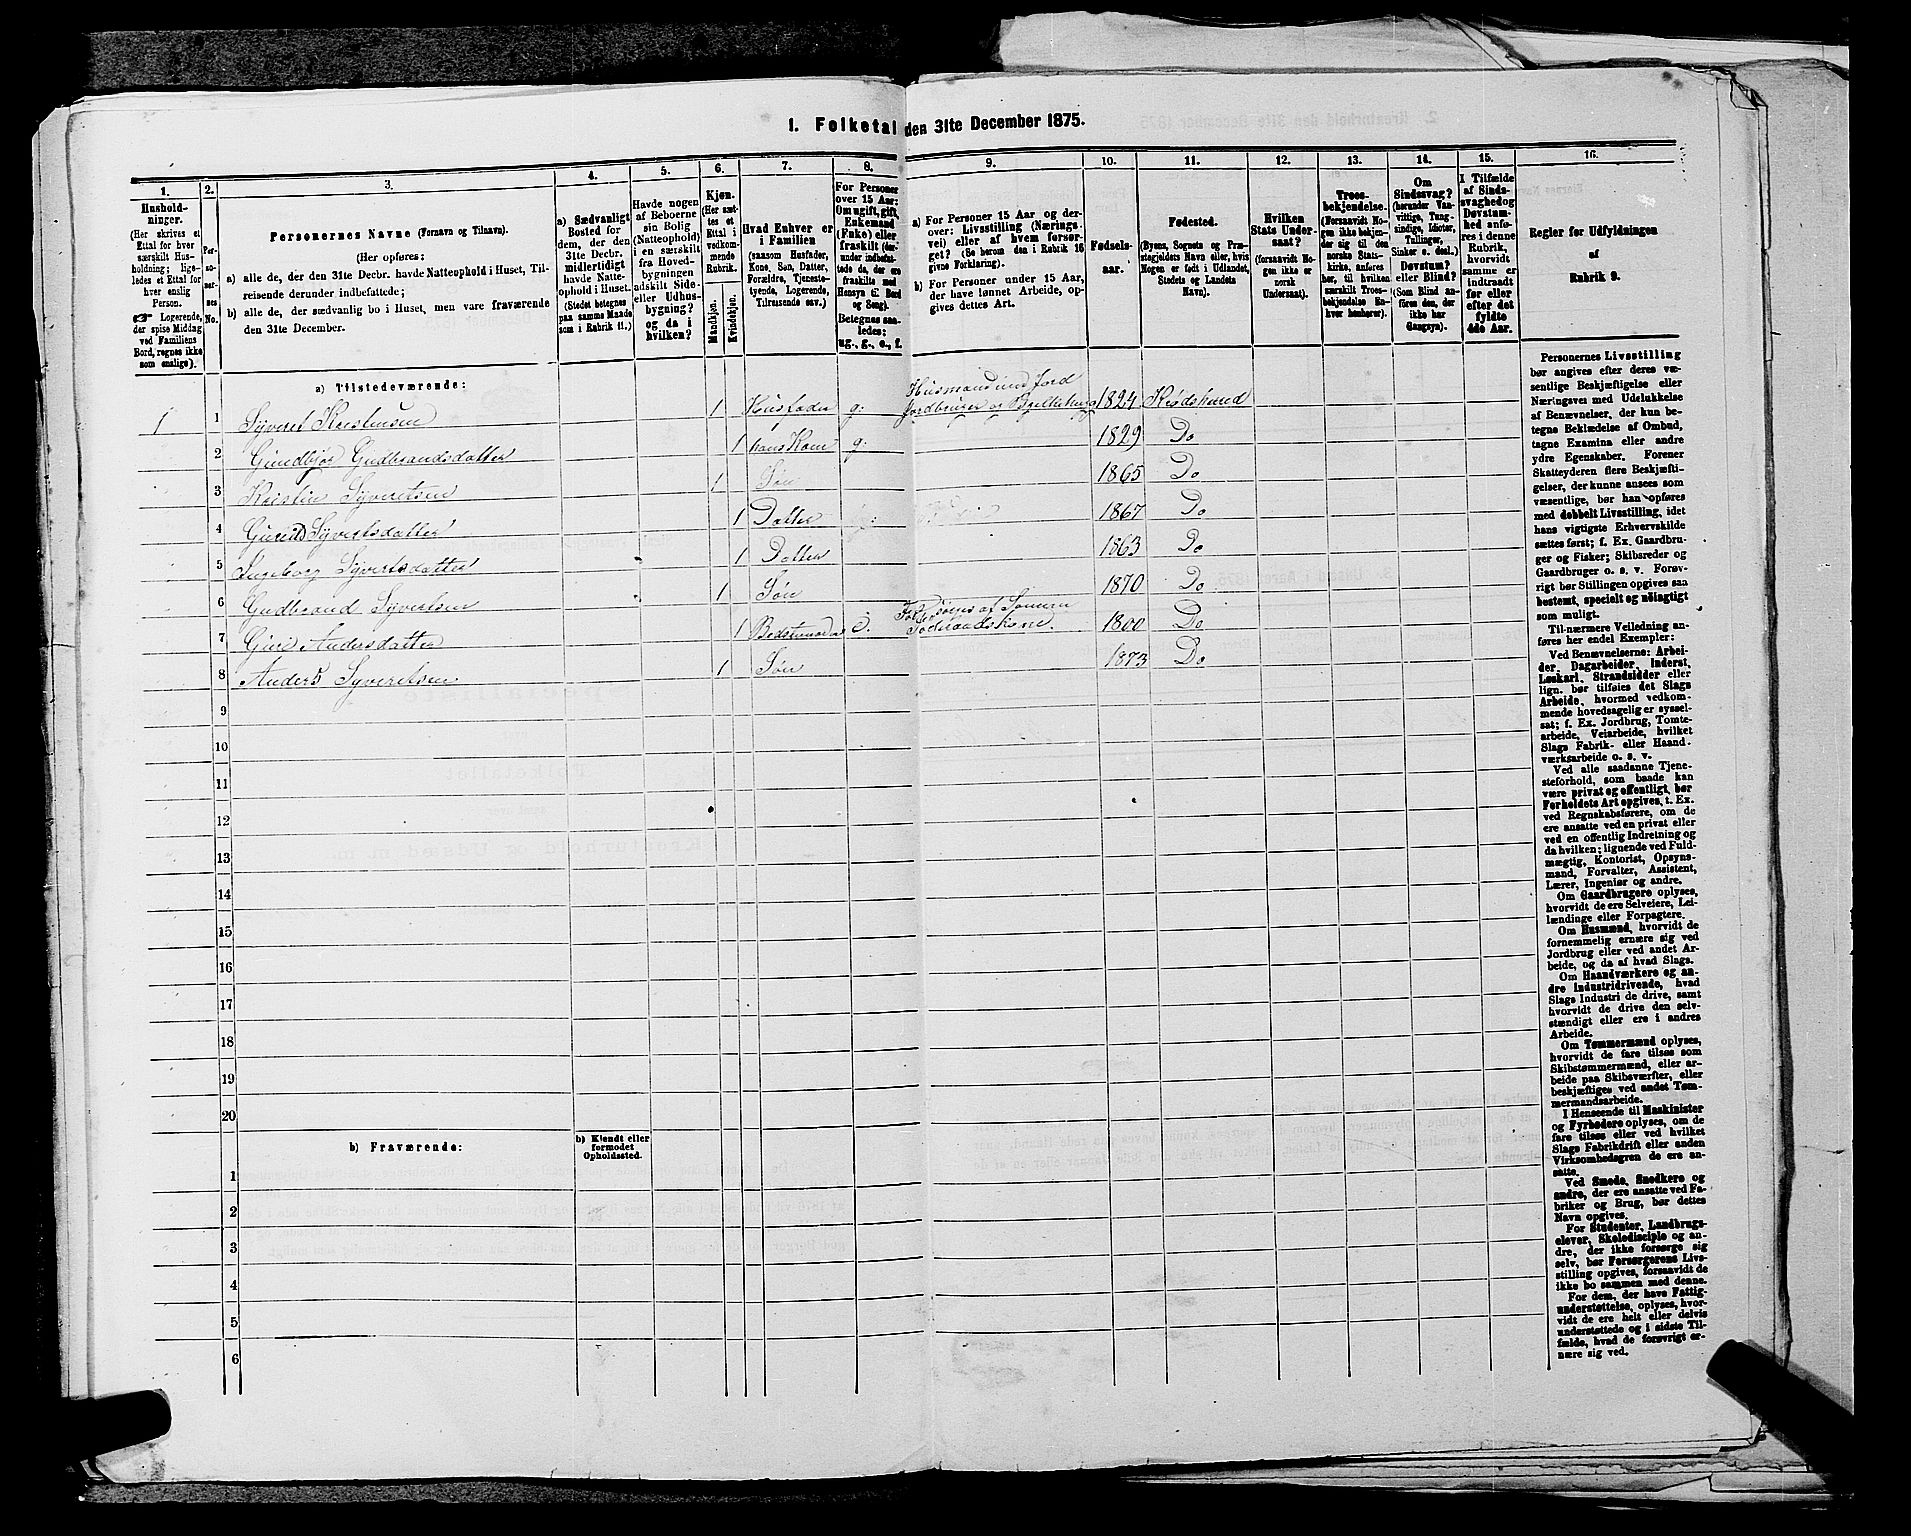 1. Folketal den 31te December 1875.
1. 2. 3. 4. 5. 6. 7. 8. 9. 10. 11. 12. 13. 14. 15. 16.
Husholdninger.
(Her skrives et
Ettal for hver
særskilt Husholdning;
ligeledes et Ettal for
hver enslig
Person.
Logerende,
der spise Middag
ved Familiens
Bord, regnes ikke
som enslige).
Personernes No.
Personernes Navne (Fornavn og Tilnavn).
(Her opføres:
a) alle de, der den 31te Decbr. havde Natteophold i Huset, Tilreisende
derunder indbefattede;
b) alle de, der sædvanlig bo i Huset, men vare fraværende
den 31te December.
a) Sædvanligt
Bosted for
dem, der den
31te Decbr.
midlertidigt
havde Natteophold
i Huset.
(Stedet betegnes
paa samme Maade
som i Rubrik 11.)
Havde nogen
af Beboerne
sin Bolig
(Natteophold)
i en særskilt
fra Hovedbygningen
adskilt Side-
eller Udhusbygning?
og da i
hvilken?
Kjøn.
(Her sættes
et
Ettal i
vedkommende
Rubrik.
Mandkjøn.
Kvindekjøn.
Hvad Enhver er
i Familien
(saasom Husfader,
Kone, Søn, Datter,
Forældre, Tjenestetyende,
Logerende,
Tilreisende osv.)
For Personer
over 15 Aar:
Om ugift, gift,
Enkemand
(Enke) eller
fraskilt (derunder
indbefattede
de, der ere
fraskilte med
Hensyn til Bord
og Seng).
Betegnes saaledes:
ug., g., e., f.
a) For Personer 15 Aar og derover:
Livsstilling (Næringsvei)
eller af hvem forsørget?
(Se herom den i Rubrik 16
givne Forklaring).
b) For Personer under 15 Aar,
der have lønnet Arbeide, opgives
dettes Art.
Fødselsaar.
Fødested.
(Byens, Sognets og Præstegjeldets
Navn eller, hvis
Nogen er født i Udlandet,
Stedets og Landets
Navn).
Hvilken
Stats Undersaat?
(forsaavidt Nogen
ikke er
norsk
Undersaat).
Troesbekjendelse.
(Forsaavidt Nogen
ikke bekjender
sig til den
norske Statskirke,
anføres
her, til hvilken
særskilt Troesbekjendelse
Enhver
henhører).
Om
Sindssvag?
(herunder Vanvittige,
Tungsindige,
Idioter,
Tullinger,
Sinker o. desl.).
Døvstum?
eller Blind?
(Som Blind anføres
den, der
ikke har
Gangsyn).
I Tilfælde
af Sindssvaghed
og
Døvstumhed
anføres
i denne
Rubrik,
hvorvidt
samme er
indtraadt
før eller
efter det
fyldte
4de Aar.
Regler for Udfyldningen
af
Rubrik 9.
a) Tilstedeværende:
1 1 Syvert Kristensen 1 Husfader g: Husmand med Jord
Jordbruger og 1824 Krødshered
2 Gundbjør Gudbrandsdatter 1 hans Kone g: 1829 Do
3 Kristin Syvertsen 1 Søn 1865 Do
4 Guri Syvertsdatter 1 Datter 1867 Do
5 Ingeborg Syvertsdatter 1 Datter 1863 Do
6 Gudbrand Syvertsen 1 Søn 1870 Do
7 Guri Andersdatter 1 Bedstemoder e. Forsørges af Sønnen
Føderaadskone. 1800 Do
8 Anders Syvertsen 1 Søn 1873 Do
9
10
11
12
13
14
15
16
17
18
19
20
b) Fraværende:
b) Kjendt eller
formodet
Opholdssted.
1
2
3
4
5
6
Personernes Livsstilling
bør angives efter deres væsentlige
Beskjæftigelse eller
Næringsvei med Udelukkelse
af Benævnelser, der kun betegne
Beklædelse af Ombud,
tagne Examina eller andre
ydre Egenskaber. Forener
Skatteyderen flere Beskjæftigelser,
der kunne ansees som
væsentlige, bør han opføres
med dobbelt Livsstilling, idet
hans vigtigste Erhvervskilde
sættes først; f. Ex. Gaardbruger
og Fisker; Skibsreder og
Gaardbruger o. s. v. Forøvrigt
bør Stillingen opgives saa
bestemt, specielt og nøiagtigt
som muligt.
Til nærmere Veiledning anføres
her endel Exempler:
Ved Benævnelserne: Arbeider,
Dagarbeider, Inderst,
Løskarl, Strandsidder eller
lign. bør tilføies det Slags
Arbeide, hvormed vedkommende
hovedsagelig er sysselsat;
f. Ex. Jordbrug, Tomtearbeide,
Veiarbeide, hvilket
Slags Fabrik- eller Haandværksarbeide
o. s. v.
Ved alle saadanne Tjenesteforhold,
som baade kan
være privat og offentligt, bør
Forholdets Art opgives, t. Ex.
ved Regnskabsførere, om de
ere ansatte ved en privat eller
ved en offentlig Indretning og
da hvilken; lignende ved Fuldmægtig,
Kontorist, Opsynsmand,
Forvalter, Assistent,
Lærer, Ingeniør og andre.
Om Gaardbrugere oplyses,
hvorvidt de ere Selveiere, Leilændinge
eller Forpagtere.
Om Husmænd, hvorvidt de
fornemmelig ernære sig ved
Jordbrug eller ved andet Arbeide,
og da af hvad Slags.
Om Haandværkere og andre
Industridrivende, hvad
Slags Industri de drive, samt
hvorvidt de drive den selvstændigt
eller ere i andres
Arbeide.
Om Tømmermænd oplyses,
hvorvidt de fare tilsøs som
Skibstømmermænd, eller arbeide
paa Skibsværfter, eller
beskjæftiges ved andet Tømmermandsarbeide.
I Henseende til Maskinister
og Fyrbødere oplyses, om de
fare tilsøs eller ved hvilket
Slags Fabrikdrift eller anden
Virksomhedsgren de ere ansatte.
Ved Smede, Snedkere og
andre, der ere ansatte ved Fabriker
og Brug, bør dettes
Navn opgives.
For Studenter, Landbrugselever,
Skoledisciple og andre,
der ikke forsørge sig
selv, bør Forsørgerens Livsstilling
opgives, forsaavidt de
ikke bo sammen med denne.
For dem, der have Fattigunderstøttelse,
oplyses, hvorvidt
de ere helt eller delvis
understøttede og i sidste Tilfælde,
hvad de forøvrigt ernære
sig ved.